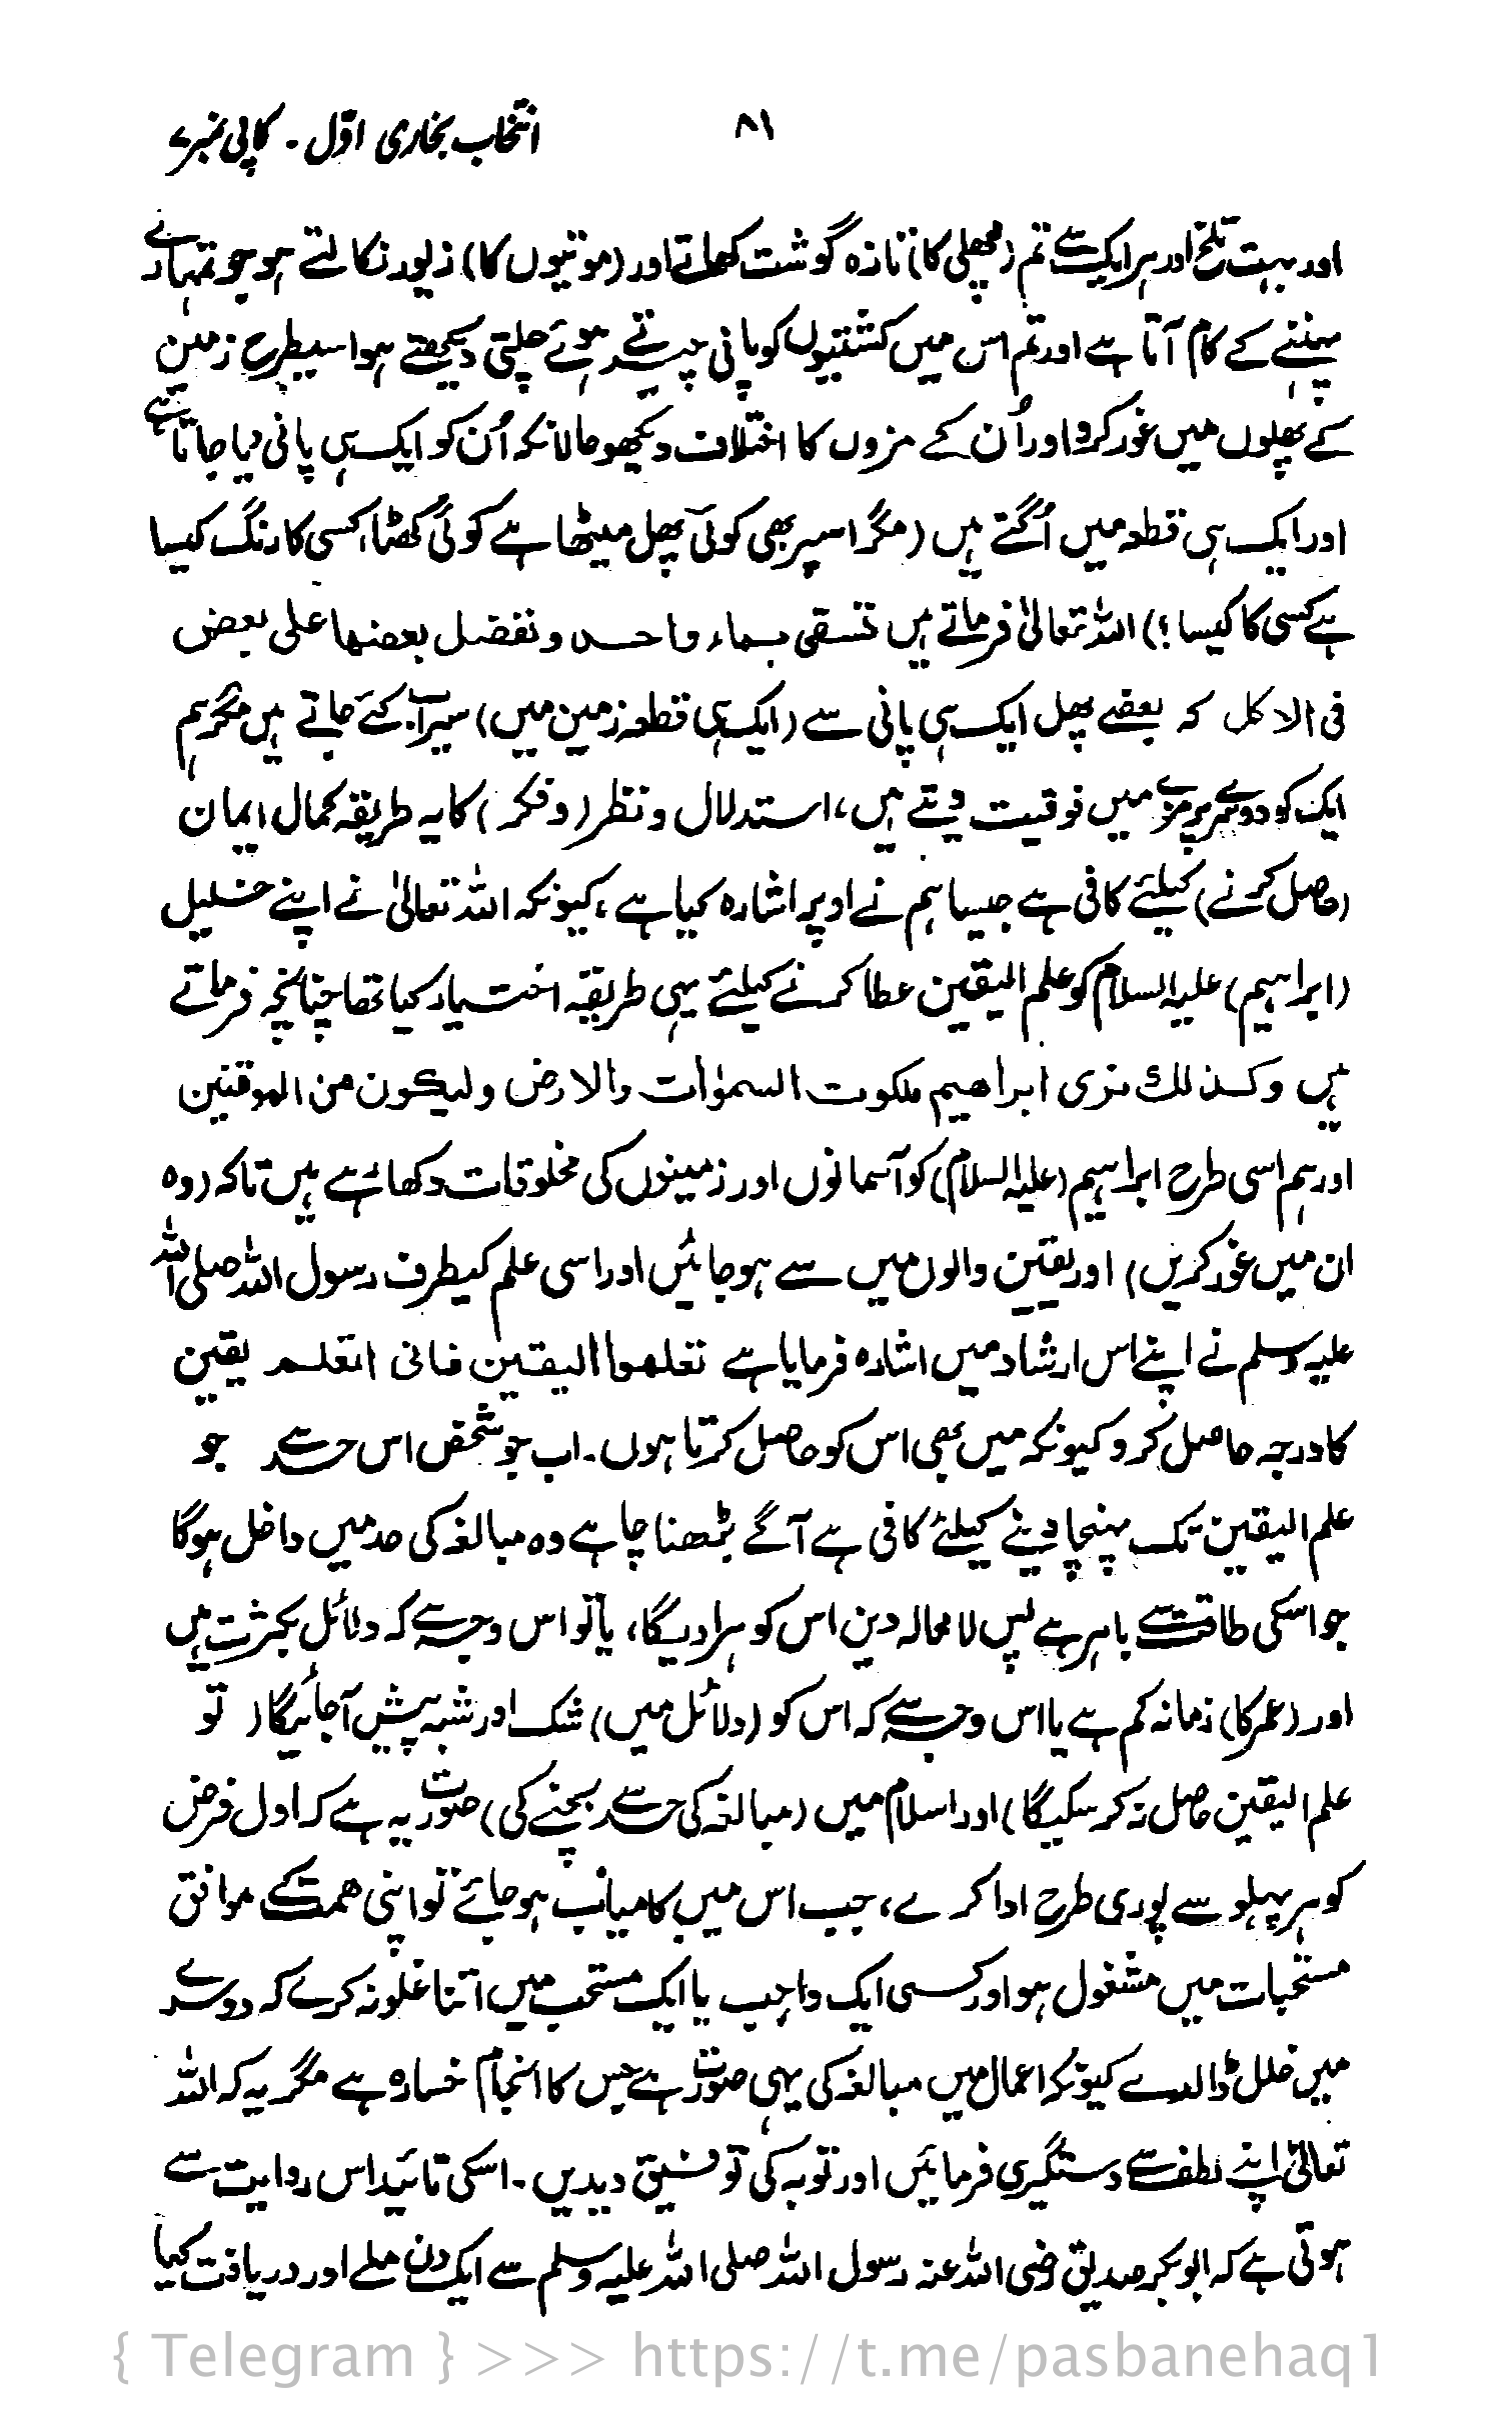 ۸۱ انتخاب بخاری اوّل - کاپی نمبر ۷
اور بہت تلخ اور ہر ایک سے تم (مچھلی کا) تازہ گوشت کھاتے اور (موتیوں کا) زیور نکالتے ہو جو تمہارے
پہننے کے کام آتا ہے اور تم اس میں کشتیوں کو پانی چیرتے ہوئے چلتی دیکھتے ہو اسیطرح زمین
کے پھلوں میں غور کرو اور اُن کے مزوں کا اختلاف دیکھو حالانکہ اُن کو ایک ہی پانی دیا جاتا ہے
اور ایک ہی قطعہ میں اُگتے ہیں (مگر اسپر بھی کوئی پھل میٹھا ہے کوئی کھٹا، کسی کا رنگ کیسا
ہے کسی کا کیسا ؟) اللہ تعالیٰ فرماتے ہیں تسقی بماء واحد ونفضل بعضها علی بعض
فی الاکل کہ بعضے پھل ایک ہی پانی سے (ایک ہی قطعہ زمین میں) سیراب کئے جاتے ہیں مگر ہم
ایک کو دوسرے پر مزے میں فوقیت دیتے ہیں، استدلال و نظر (و فکر) کا یہ طریقہ کمال ایمان
(حاصل کرنے) کیلئے کافی ہے جیسا ہم نے اوپر اشارہ کیا ہے، کیونکہ اللہ تعالیٰ نے اپنے خلیل
(ابراہیم) علیہ السلام کو علم الیقین عطا کرنے کیلئے یہی طریقہ اختیار کیا تھا چنانچہ فرماتے
ہیں وکذلك نری ابراهیم ملکوت السمٰوات والارض ولیکون من الموقنین
اور ہم اسی طرح ابراہیم (علیہ السلام) کو آسمانوں اور زمینوں کی مخلوقات دکھائے ہیں تاکہ (وہ
ان میں غور کریں) اور یقین والوں میں سے ہوجائیں اور اسی علم کیطرف رسول اللہ صلی اللہ
علیہ وسلم نے اپنے اس ارشاد میں اشارہ فرمایا ہے تعلموا الیقین فانی اتعلمہ یقین
کا درجہ حاصل کرو کیونکہ میں بھی اس کو حاصل کرتا ہوں۔ اب جو شخص اس حد سے جو
علم الیقین تک پہنچا دینے کیلئے کافی ہے آگے بڑھنا چاہے وہ مبالغہ کی حد میں داخل ہوگا
جو اسکی طاقت سے باہر ہے پس لا محالہ دین اس کو ہرا دیگا، یا تو اس وجہ سے کہ دلائل بکثرت ہیں
اور (عمر کا) زمانہ کم ہے یا اس وجہ سے کہ اس کو (دلائل میں) شک اور شبہ پیش آجائیگا (تو
علم الیقین حاصل نہ کر سکیگا) اور اسلام میں (مبالغہ کی حد سے بچنے کی) صورت یہ ہے کہ اول فرض
کو ہر پہلو سے پوری طرح ادا کرے، جب اس میں کامیاب ہوجائے تو اپنی ھمت کے موافق
مستحبات میں مشغول ہو اور کسی ایک واجب یا ایک مستحب میں اتنا غلو نہ کرے کہ دوسرے
میں خلل ڈالدے کیونکہ اعمال میں مبالغہ کی یہی صورت ہے جس کا انجام خسارہ ہے مگر یہ کہ اللہ
تعالیٰ اپنے لطف سے دستگیری فرمائیں اور توبہ کی توفیق دیدیں۔ اسکی تائید اس روایت سے
ہوتی ہے کہ ابوبکر صدیق رضی اللہ عنہ رسول اللہ صلی اللہ علیہ وسلم سے ایک دن ملے اور دریافت کیا
{ Telegram } >>> https://t.me/pasbanehaq1